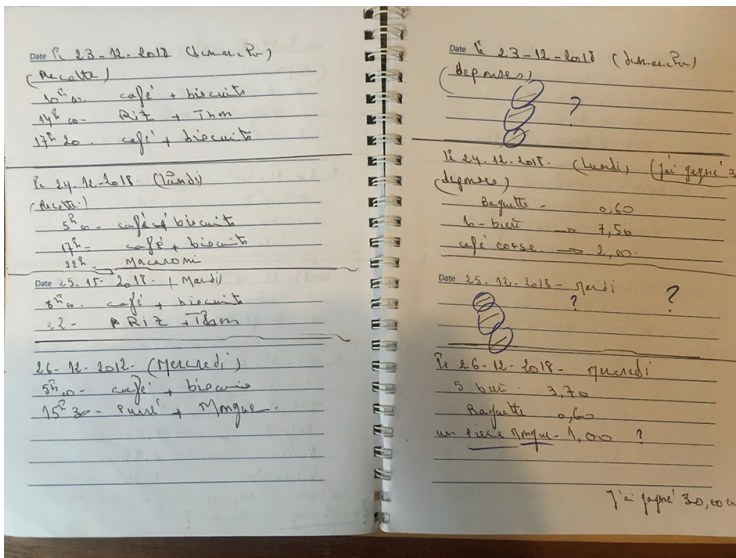 Date le 23-12-2018 (Dimanche)
(Recette)
10h00 café + biscuits
14h00 Riz + Thon
17h20. café + biscuits
le 24.12-2018. (Lundi)
(Recette)
5h00 - café + biscuits
17h - café + biscuits
22h - Macaroni
Date 25.12.2018. (Mardi)
8h00. café + biscuits
22 - Riz + Thon
26-12.2012- (Mercredi)
5h00- café + biscuits
15h30- Purré + Mongue.
Date le 23-12-2018 (Dimanche)
(depenses)
?
le 24.12-2018. (Lundi) (j'ai gagné 3
(depenses)
Baguette - 0,60
10- 7,50
café corse 2,00.
Date 25.12.2018- Mardi
? ?
le 26-12-2018- Mercredi
5 3,70
Baguette 0,60
un piece Mongue- 1,00 ?
J'ai gagné 30,00